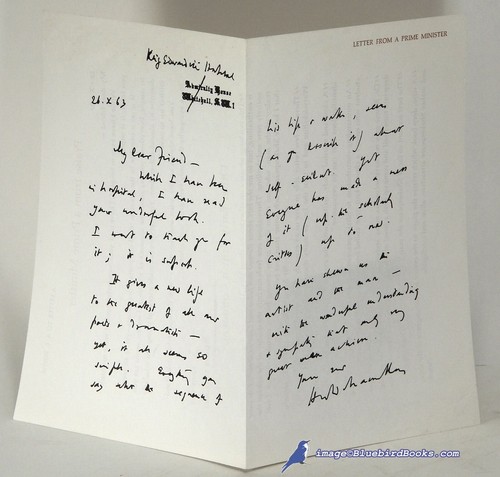 King Edward VII Hospital
Admiralty House
Whitehall, S.W.1
26.X.63
My dear Friend –
While I have been
in hospital, I have read
your wonderful book.
I want to thank you for
it; it is superb.
It gives a new life
to the greatest of all our
poets & dramatists –
yet, it all seems so
simple. Everything you
say about the sequence of
LETTER FROM A PRIME MINISTER
his life & works, seems
(as you describe it) almost
self-evident. Yet
Everyone has made a mess
of it (up. the scholarly
critics) up to now.
You have shewn us the
artist and the man –
with the wonderful understanding
& sympathy that only very
great can achieve.
Yours ever
Harold Macmillan
image©BluebirdBooks.com